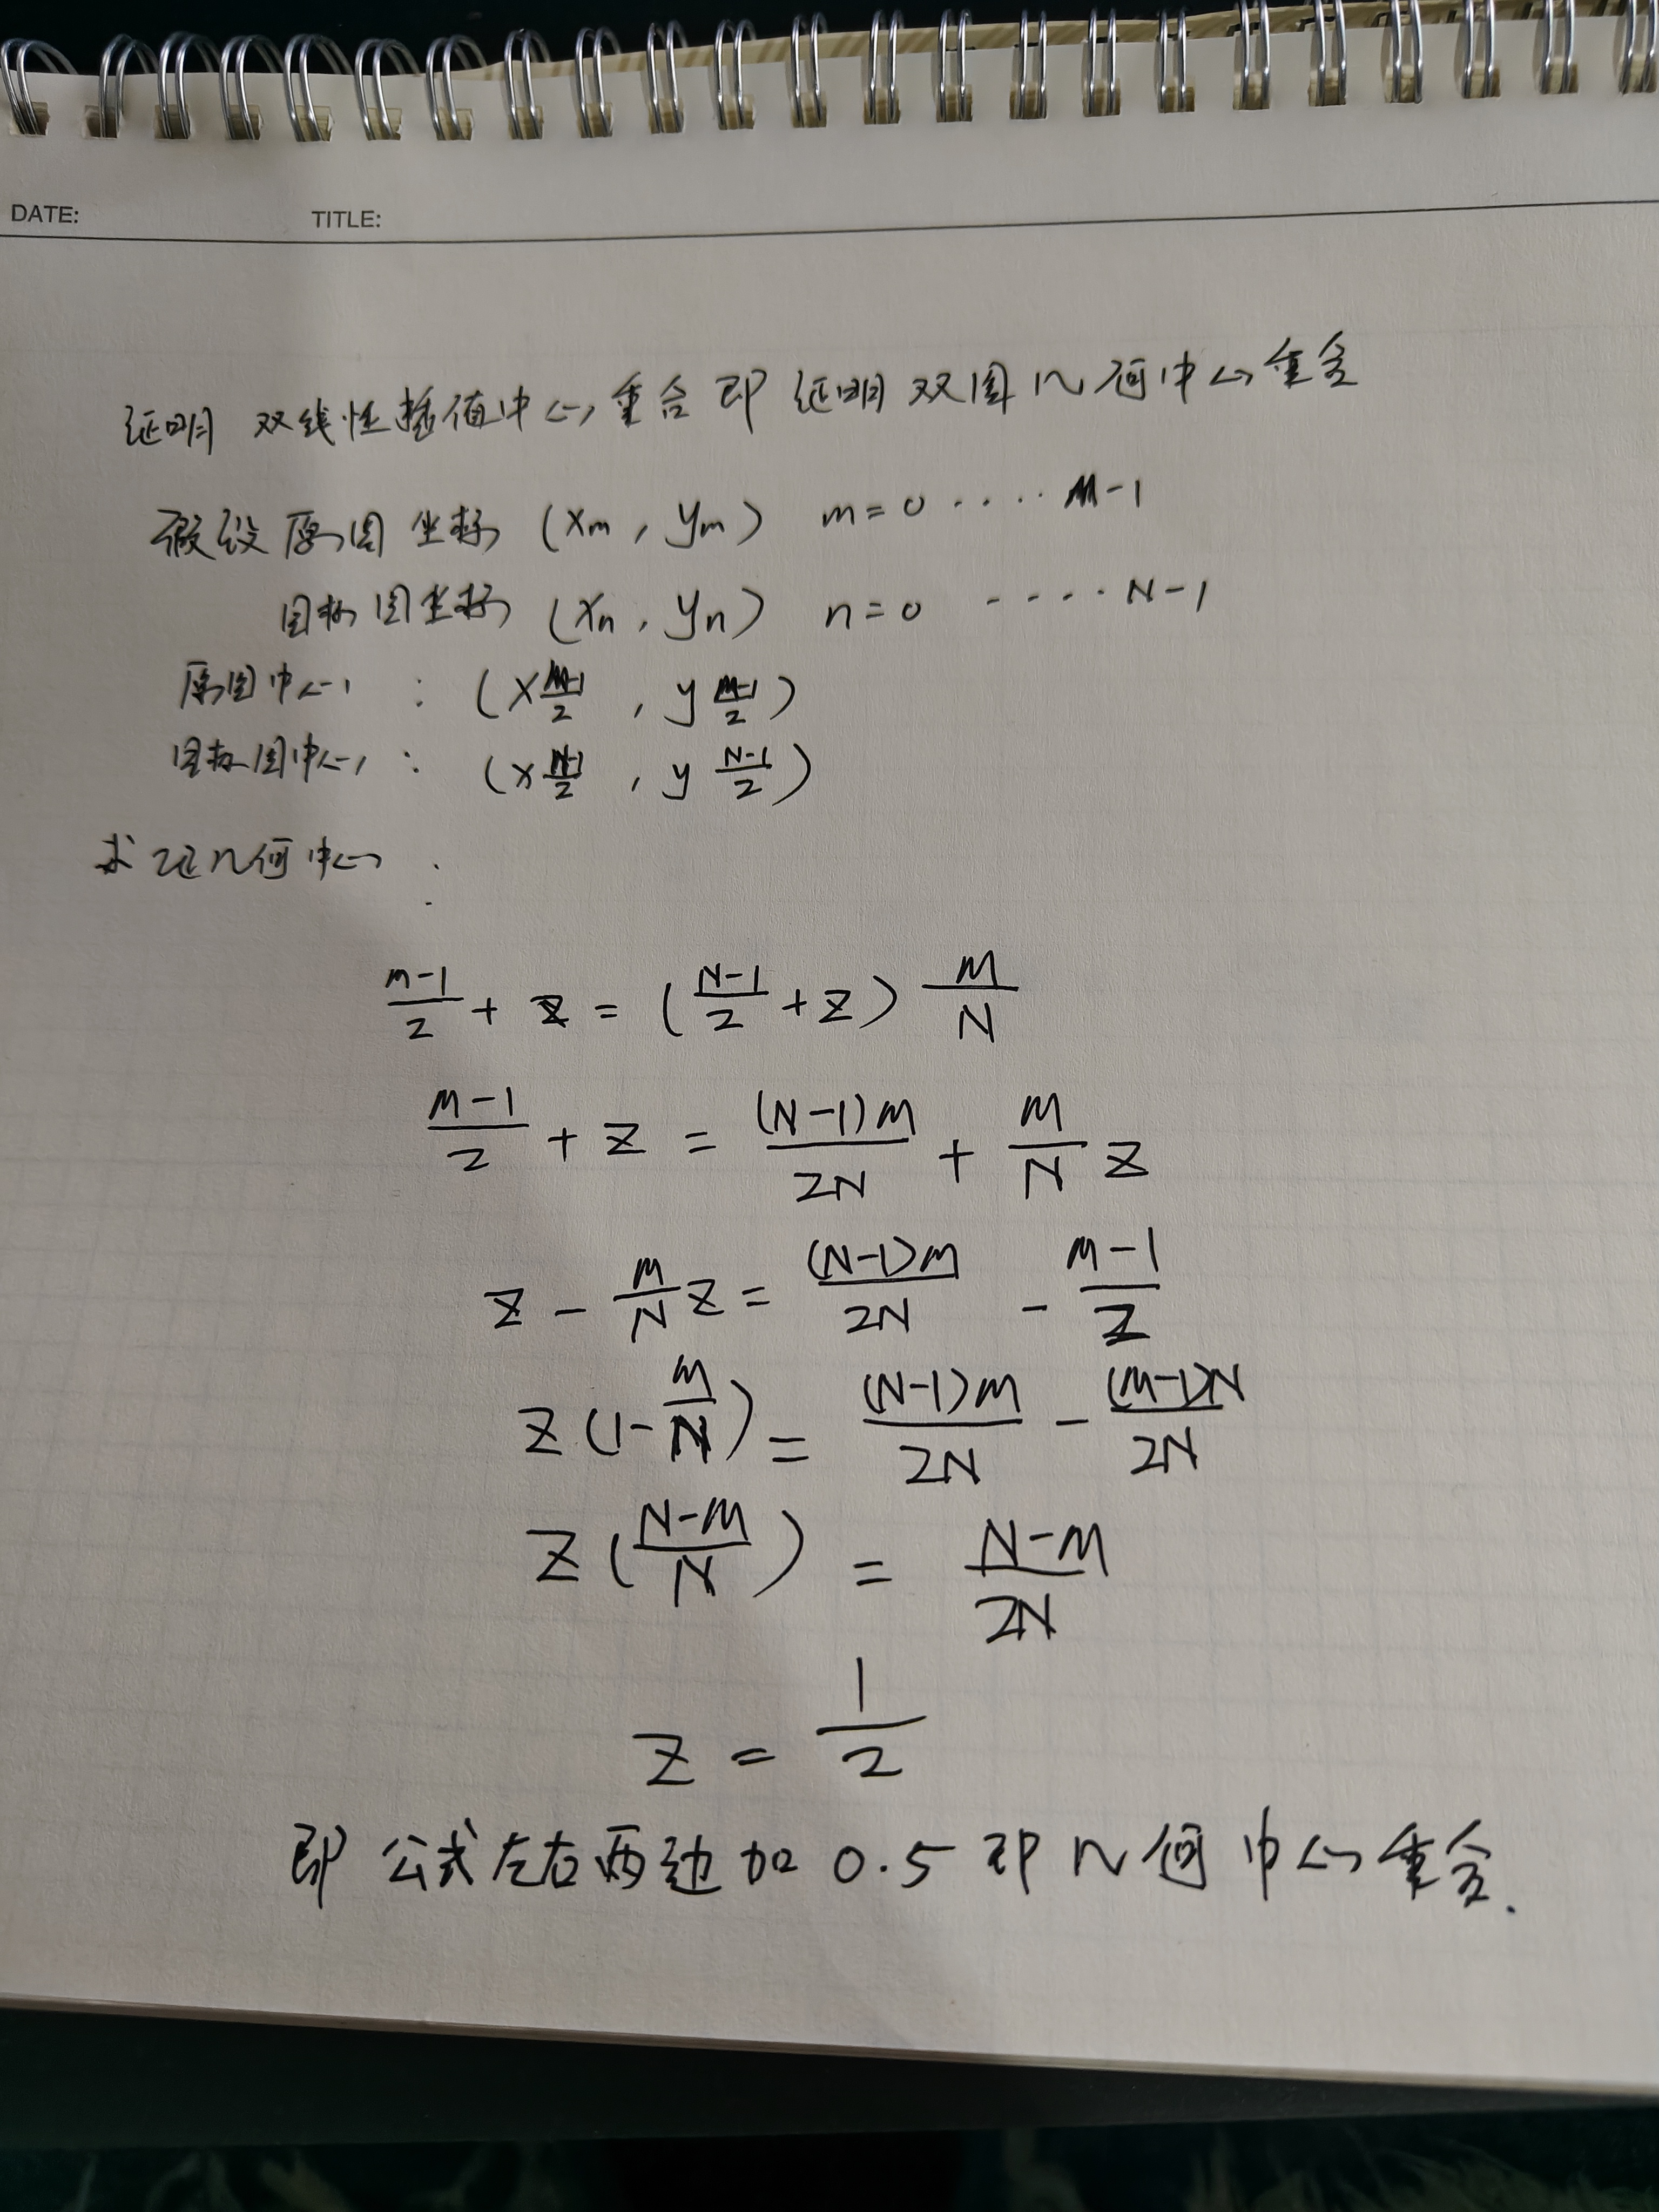 DATE: TITLE:
证明 双线性插值中心重合 即 证明 双图几何中心重合
假设原图坐标 (xm, ym) m=0 ···· M-1
目标图坐标 (xn, yn) n=0 ···· N-1
原图中心 : (x (M-1)/2 , y (M-1)/2)
目标图中心 : (x (N-1)/2 , y (N-1)/2)
求证几何中心 :
(m-1)/2 + z = ((N-1)/2 + z) M/N
(M-1)/2 + z = (N-1)M/2N + M/N z
z - M/N z = (N-1)M/2N - (M-1)/2
z(1-M/N) = (N-1)M/2N - (M-1)N/2N
z((N-M)/N) = (N-M)/2N
z = 1/2
即 公式左右两边加 0.5 即 几何中心重合.